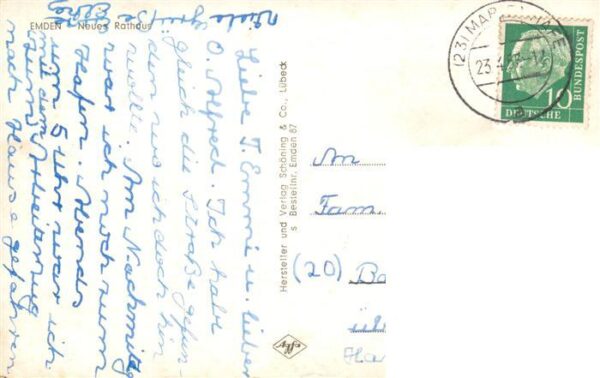 EMDEN Neues Rathaus
Liebe T. Emmi u. lieber
O. Alfred. Ich habe
gleich die Straße gefun-
den wo ich doch hin
wollte. Am Nachmittag
war ich noch zum
Hafen. Abends
um 5 Uhr war ich
mit dem Arbeiterzug
nach Hause gefahren
Viele
Grüße
Hersteller und Verlag Schöning & Co., Lübeck
S Bestellnr. Emden 87
(23) MAR
23
DEUTSCHE
BUNDESPOST
10
An
Fam.
(20) Ba
Ha